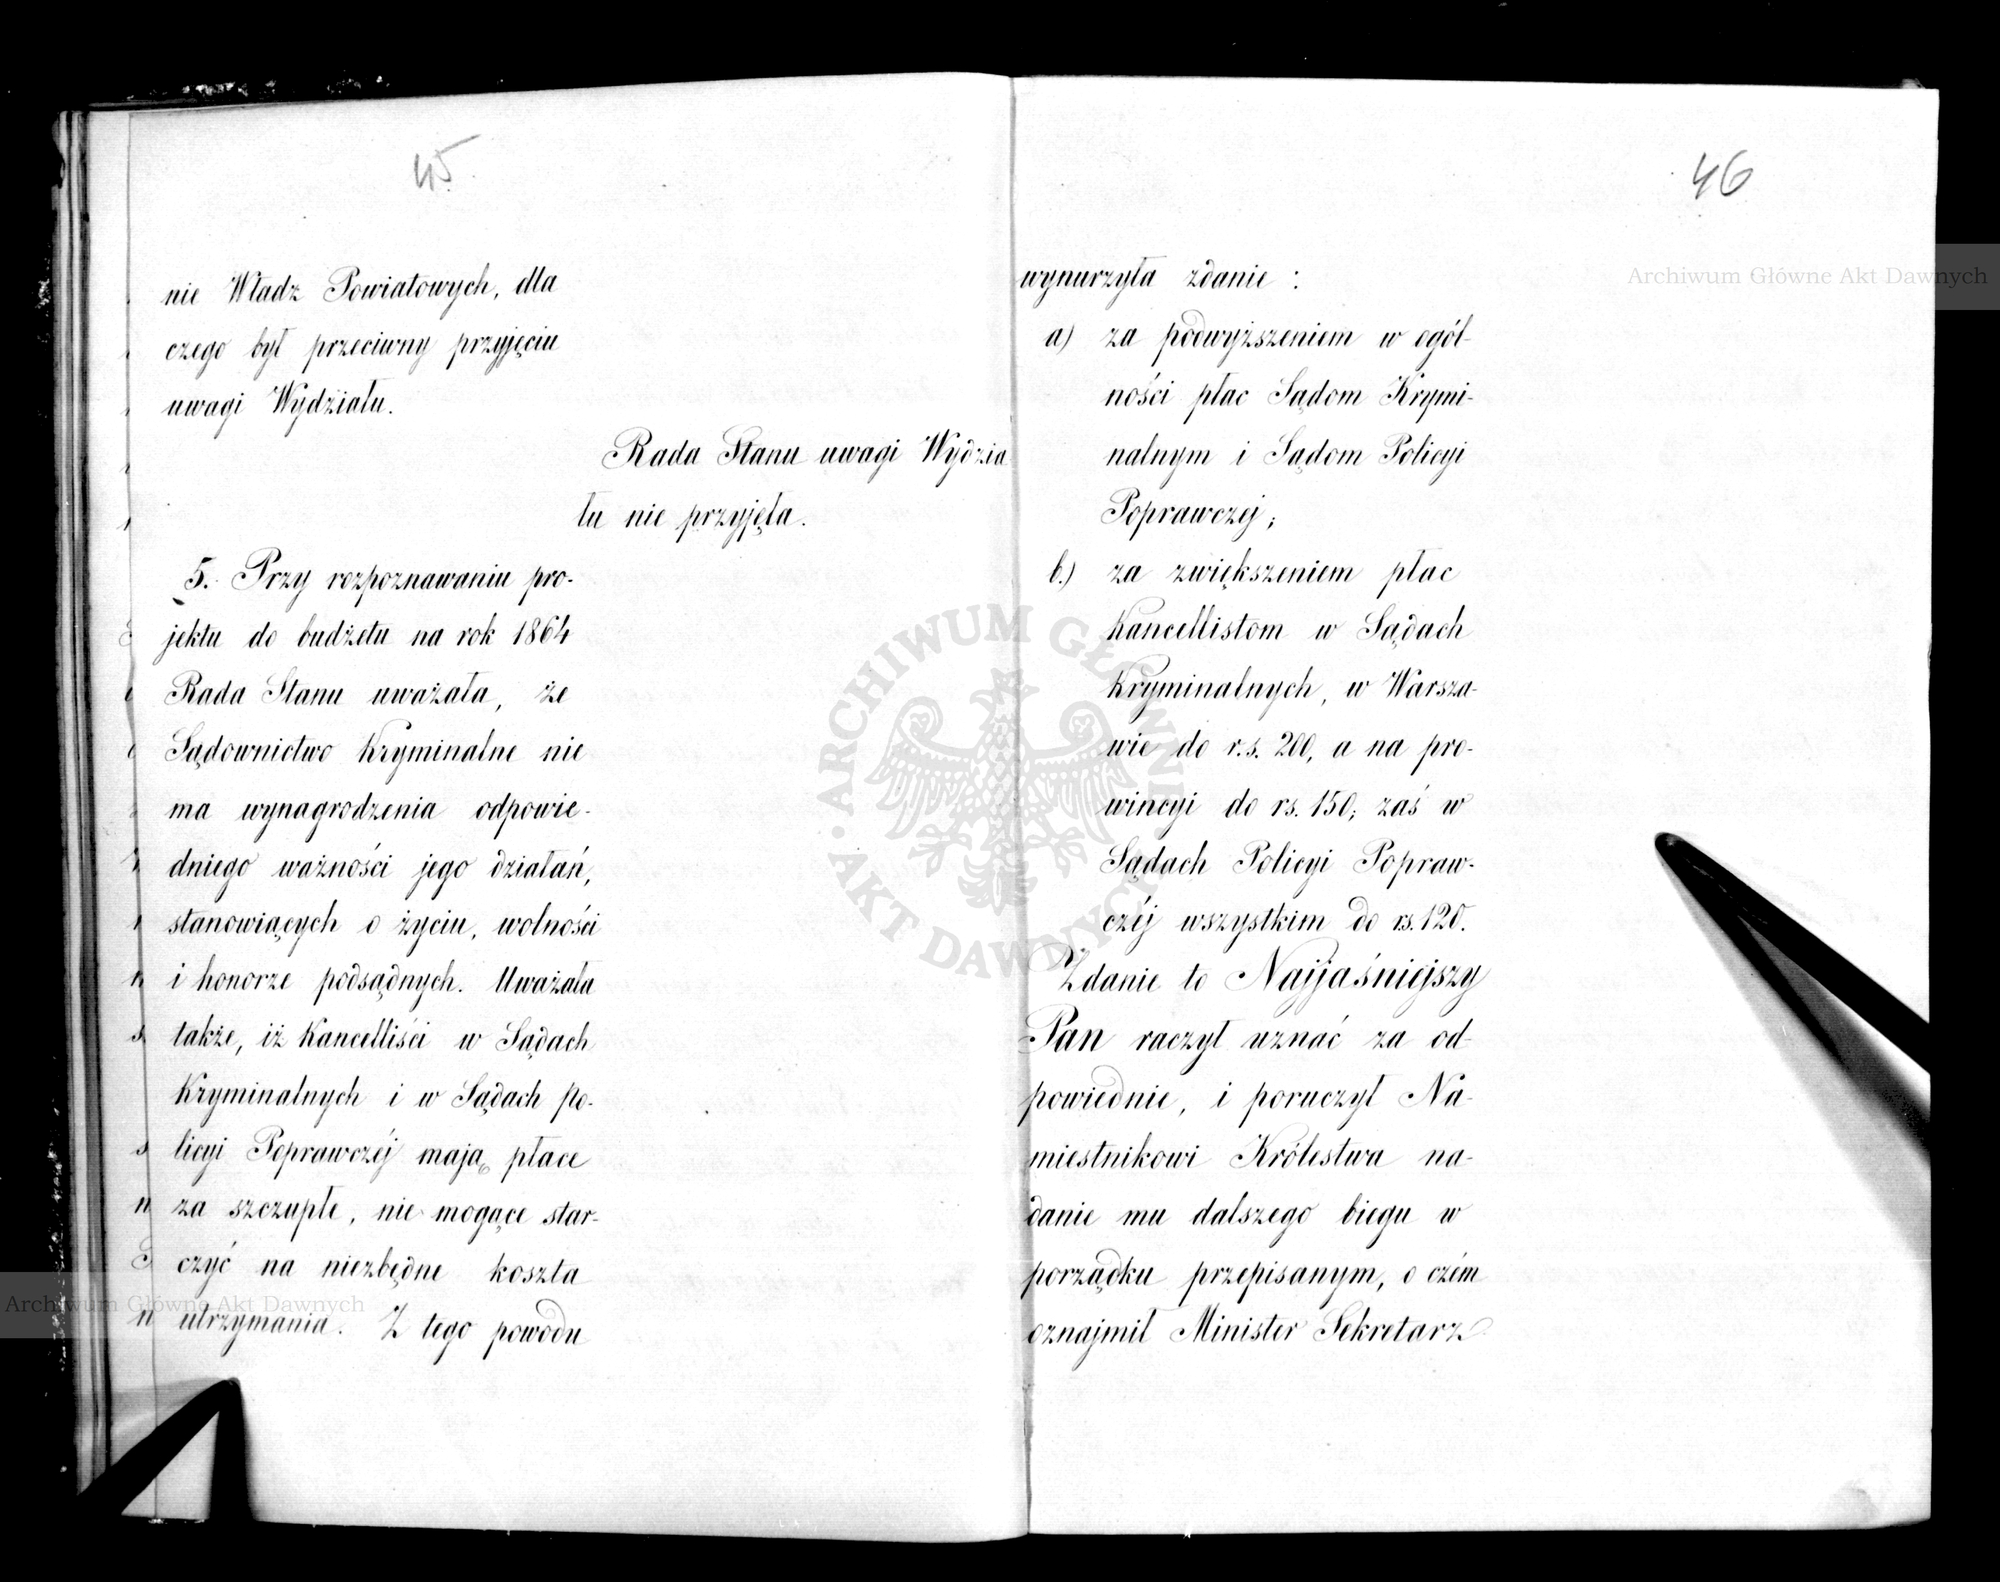 45
nie Władz Powiatowych, dla
czego był przeciwny przyjęciu
uwagi Wydziału.
Rada Stanu uwagi Wydzia
łu nie przyjęła.
5. Przy rozpoznawaniu pro-
jektu do budżetu na rok 1864
Rada Stanu uważała, że
Sądownictwo Kryminalne nie
ma wynagrodzenia odpowie-
dniego ważności jego działań,
stanowiących o życiu, wolności
i honorze podsądnych. Uważała
także, iż Kancelliści w Sądach
Kryminalnych i w Sądach Po-
licyi Poprawczéj mają płace
za szczupłe, nie mogące star-
czyć na niezbędne koszta
utrzymania. Z tego powodu
46
wynurzyła zdanie :
a) za podwyższeniem w ogól-
ności płac Sądom Krymi-
nalnym i Sądom Policyi
Poprawczej;
b.) za zwiększeniem płac
Kancellistom w Sądach
Kryminalnych, w Warsza-
wie do r.s. 200, a na pro-
wincyi do rs. 150; zaś w
Sądach Policyi Popraw-
czéj wszystkim do rs. 120.
Zdanie to Najjaśniejszy
Pan raczył uznać za od-
powiednie, i poruczył Na-
miestnikowi Królestwa na-
danie mu dalszego biegu w
porządku przepisanym, o czém
oznajmił Minister Sekretarz
Archiwum Główne Akt Dawnych
Archiwum Główne Akt Dawnych
ARCHIWUM GŁÓWNE AKT DAWNYCH